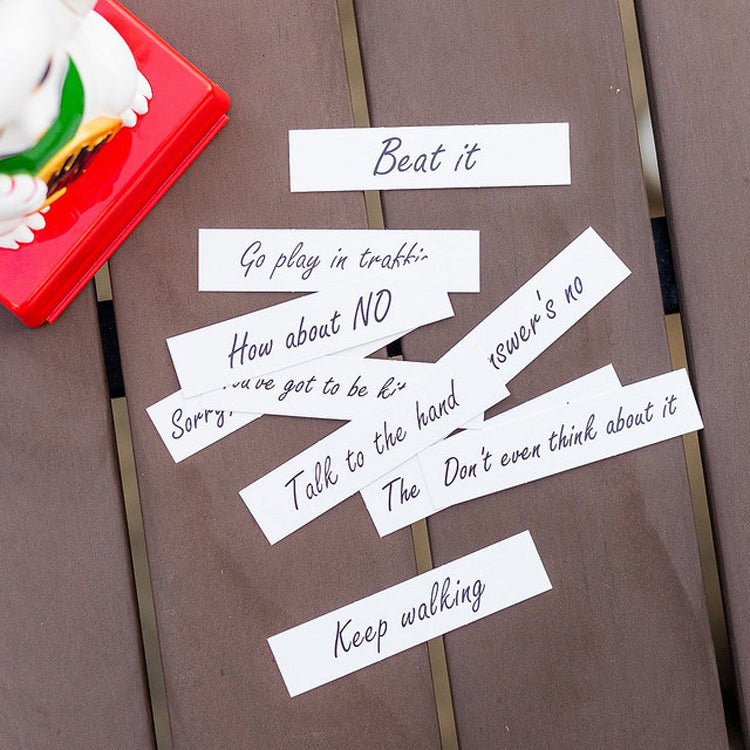 Beat it
Go play in traffic
How about NO
nswer's no
Sorry,
've got to be
Talk to the hand
The
Don't even think about it
Keep walking